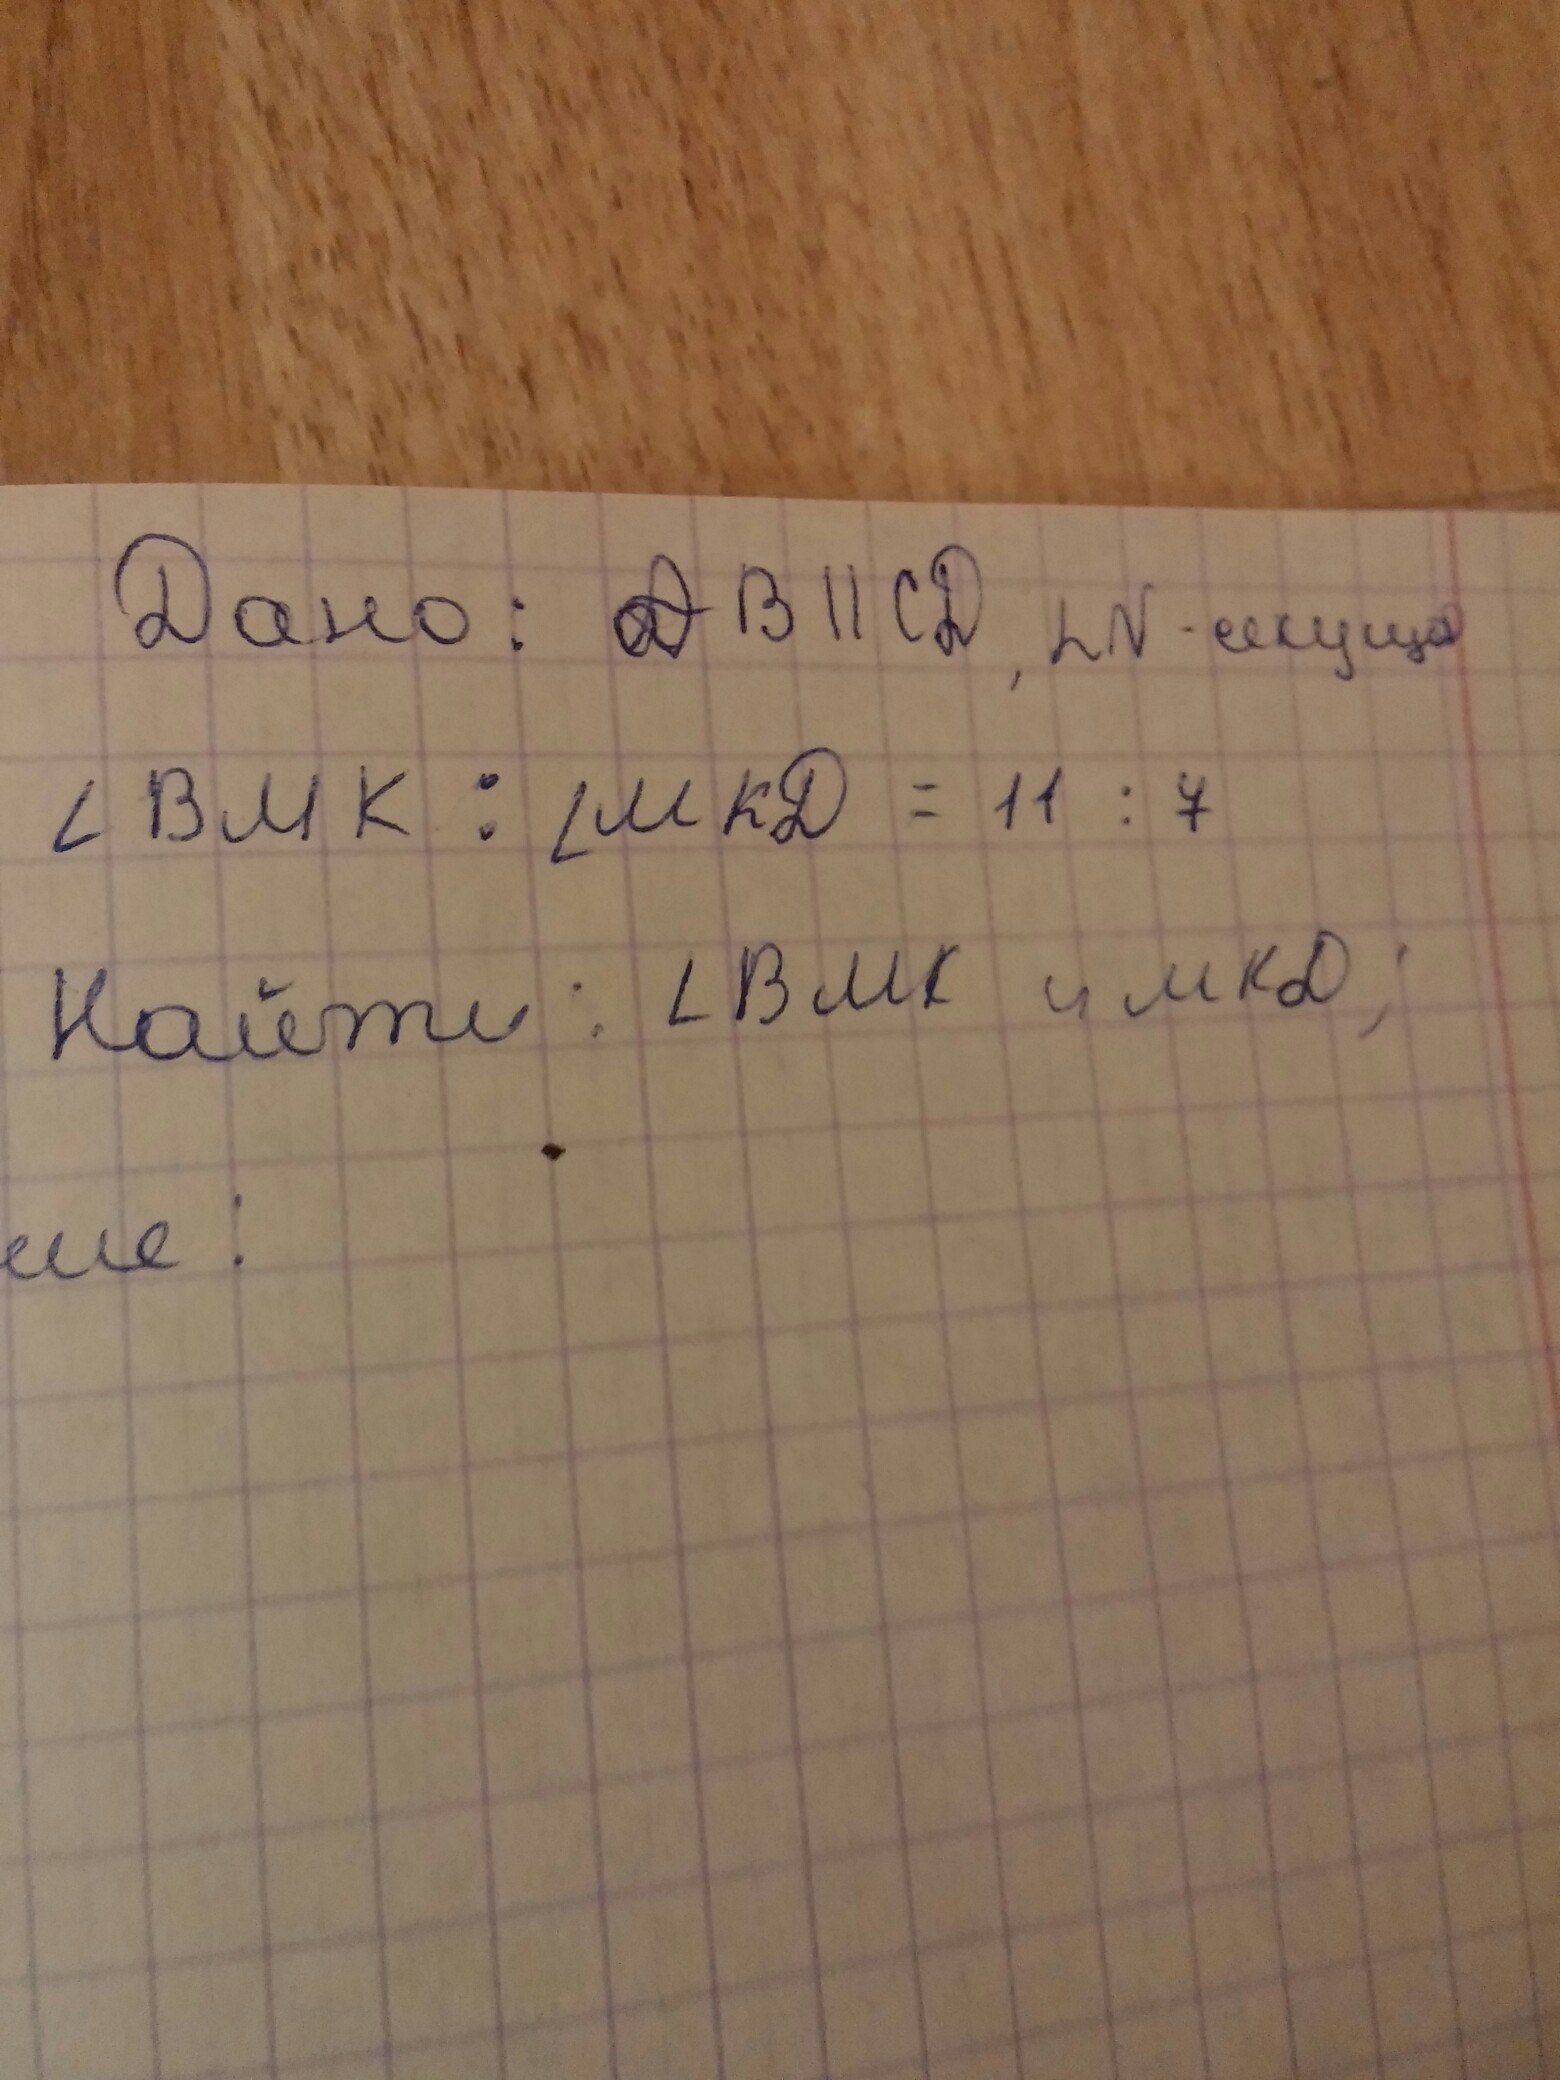 Дано: AB || CD, LN - секуща
∠BMK : ∠MKD = 11 : 7
Найти: ∠BMK и MKD;
ние: